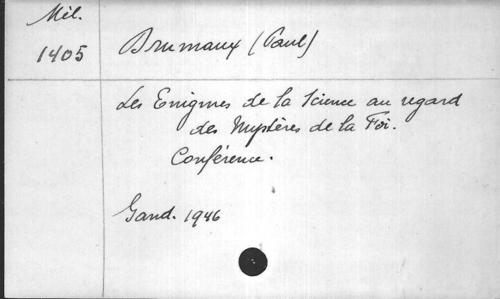 Mél.
1405
Brumaux (Paul)
Les Enigmes de la Science au regard
des Mystères de la Foi.
Conférence.
Gand. 1946